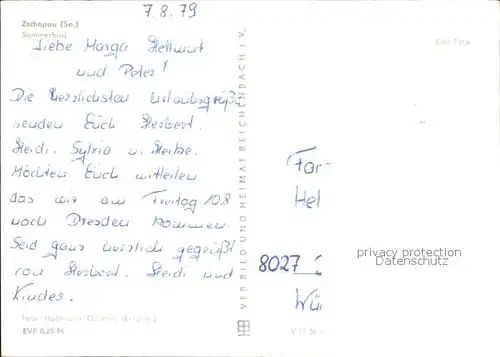 7.8.79
Zschopau (Sa.)
Sommerbad
Liebe Marga Hellmut
und Peter!
Die herzlichsten Urlaubsgrüße
senden Euch Herbert.
Heidi. Sylvia u. Heike.
Möchten Euch mitteilen
das wir am Freitag 10.8
nach Dresden kommen.
Seid ganz herzlich gegrüßt
von Herbert. Heidi und
Kinder.
Foto: Hoffmann
EVP 0,25 M
VEB BILD UND HEIMAT REICHENBACH i. V.
Echt Foto
Fam-
Hel
8027
privacy protection
Datenschutz
Wü
V 11 50